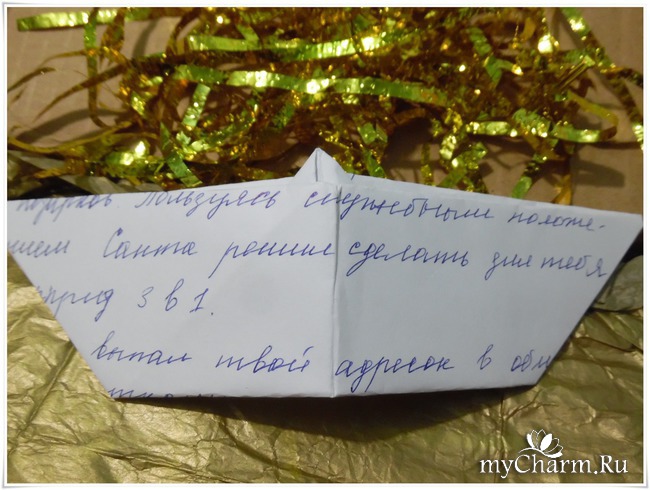 подарков. Пользуясь служебным положе-
нием Санта решил сделать для тебя
3 в 1.
выпал твой адресок в
myCharm.Ru